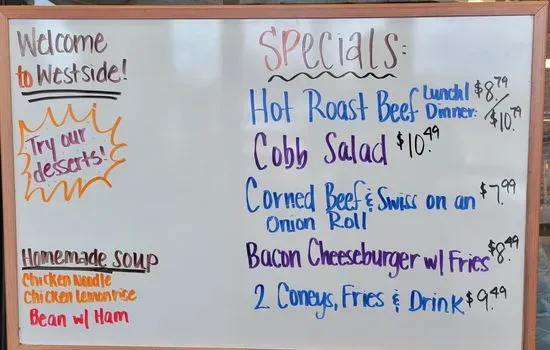 Welcome
to Westside!
Try our
desserts!
Homemade soup
Chicken Noodle
Chicken Lemon rice
Bean w/ Ham
Specials:
Hot Roast Beef Lunch/ $8.79
Dinner: $10.79
Cobb Salad $10.49
Corned Beef & Swiss on an $7.99
Onion Roll
Bacon Cheeseburger w/ Fries $8.49
2 Coneys, Fries & Drink $9.49